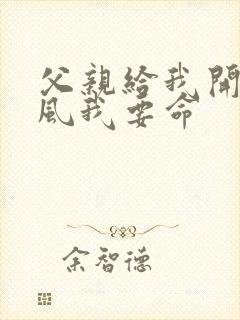 父親給我開
風我要命
余智德